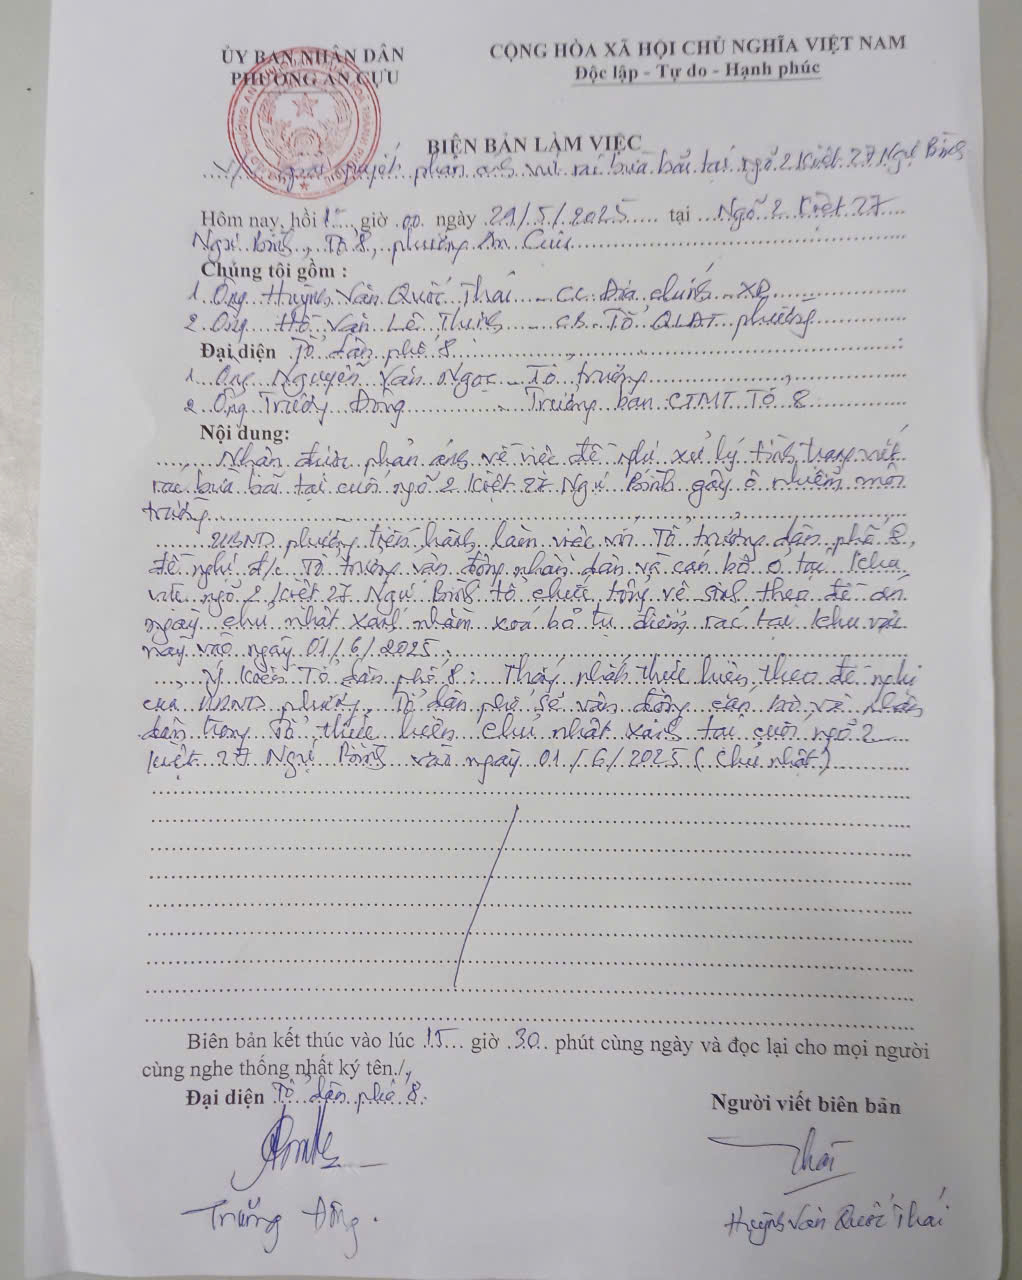 ỦY BAN NHÂN DÂN
PHƯỜNG AN CỰU
CỘNG HÒA XÃ HỘI CHỦ NGHĨA VIỆT NAM
Độc lập - Tự do - Hạnh phúc
BIÊN BẢN LÀM VIỆC
V/v giải quyết phản ánh vứt rác bừa bãi tại ngõ 2 Kiệt 27 Ngự Bình
Hôm nay, hồi 15 giờ 00 ngày 29/5/2025 tại Ngõ 2 Kiệt 27
Ngự Bình, Tổ 8, phường An Cựu
Chúng tôi gồm :
1. Ông Huỳnh Văn Quốc Thái - CC Địa chính - XD
2. Ông Hồ Văn Lê - CB Tổ QLĐT phường
Đại diện Tổ dân phố 8 :
1. Ông Nguyễn Văn Ngọc - Tổ trưởng
2. Ông Trương Đồng - Trưởng ban CTMT Tổ 8
Nội dung:
Nhận được phản ánh về việc đề nghị xử lý tình trạng vứt
rác bừa bãi tại cuối ngõ 2 Kiệt 27 Ngự Bình gây ô nhiễm môi
trường
UBND phường tiến hành làm việc với Tổ trưởng dân phố 8,
đề nghị đ/c Tổ trưởng vận động nhân dân và cán bộ ở tại khu
vực ngõ 2 Kiệt 27 Ngự Bình tổ chức tổng vệ sinh theo đề án
ngày chủ nhật xanh nhằm xoá bỏ tụ điểm rác tại khu vực
này vào ngày 01/6/2025.
Ý kiến Tổ dân phố 8 : Thống nhất thực hiện theo đề nghị
của UBND phường, Tổ dân phố sẽ vận động cán bộ và nhân
dân trong Tổ thực hiện chủ nhật xanh tại cuối ngõ 2
Kiệt 27 Ngự Bình vào ngày 01/6/2025 (Chủ nhật)
Biên bản kết thúc vào lúc 15 giờ 30 phút cùng ngày và đọc lại cho mọi người
cùng nghe thống nhất ký tên./,
Đại diện Tổ dân phố 8.
Người viết biên bản
Thái
Trương Đồng.
Huỳnh Văn Quốc Thái